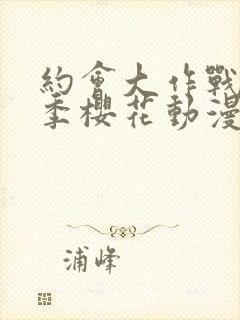 約會大作戰
季櫻花動漫
浦峰